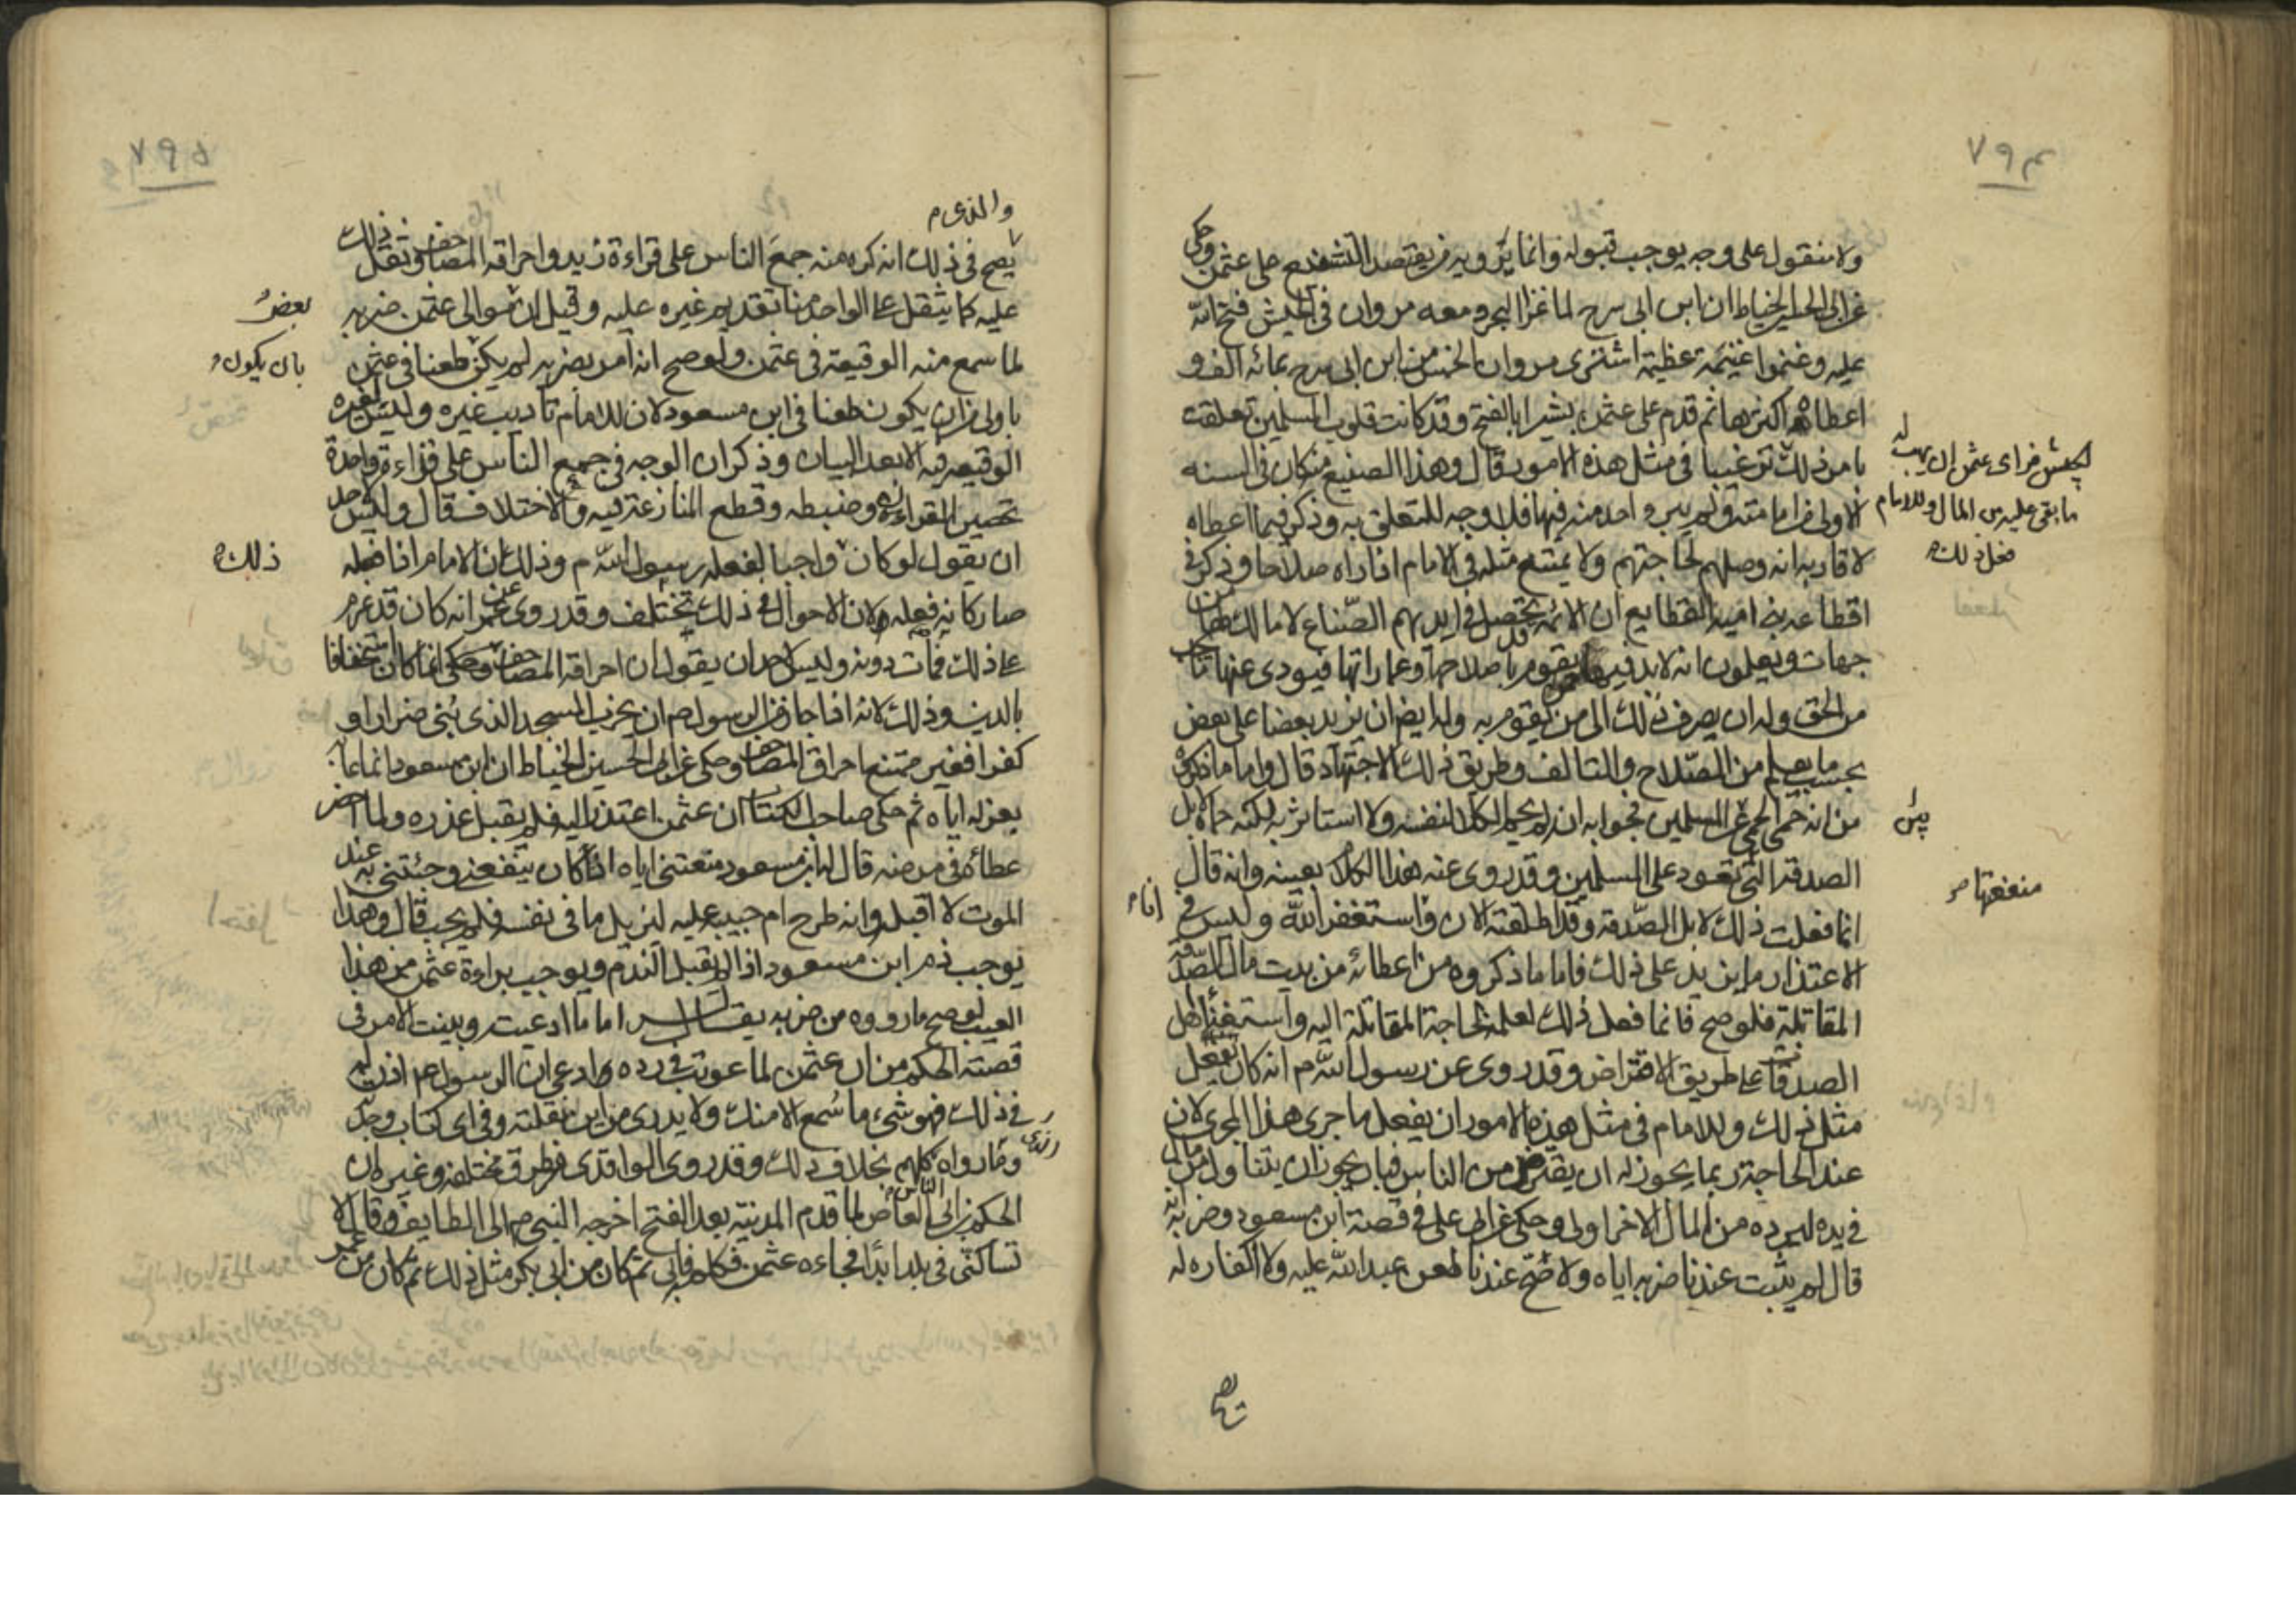 ٧٩٤
ولا منقول على وجه يوجب قبوله وانما يرويه من يقصد التشنيع على عثمن وحكى
عن ابى الحسين الخياط ان ابن ابى سرح لما غزا البحر ومعه مروان فى الجيش ففتح الله
عليه وغنموا غنيمة عظيمة اشترى مروان الخمس من ابن ابى سرح بمائه الف و
اعطاه اكثرها ثم قدم على عثمن بشيرا بالفتح وقد كانت قلوب المسلمين تعلقت
بامر ذلك الجيش فراى عثمن ان يهب له
ما بقى عليه من المال وللامام
فعل ذلك
ترغيبا فى مثل هذه الامور قال وهذا الصنيع منه كان فى السنه
الاولى من امامته ولم يبرء احد منه فيها فلا وجه للتعلق به وذكر فيما اعطاه
لاقاربه انه وصلهم لحاجتهم ولا يمتنع مثله فى الامام اذا راه صلاحا وذكر فى
اقطاعه بنى اميه القطايع ان الائمة تحصل فى ايديهم الضياع لا مالك لها من
جهات ويعلمون انه لا بد فيها ممن يقوم باصلاحها وعماراتها فيودى عنها ما يجب
من الحق وله ان يصرف ذلك الى من يقوم به وله ايضا ان يزيد بعضا على بعض
بحسب ما يعلم من الصلاح والتالف وطريق ذلك الاجتهاد قال واما ما ذكروه
من انه حمى الحمى عن المسلمين فجوابه انه لم يحم الكلا لنفسه ولا استاثر به لكنه حماه لابل
الصدقة التى منفعتها تعود على المسلمين وقد روى عنه هذا الكلام بعينه وانه قال
انما فعلت ذلك لابل الصدقة وقد اطلقته الان وانا استغفر الله وليس فى
الاعتذار ما يزيد على ذلك فاما ما ذكروه من اعطائه من بيت مال الصدقة
المقاتلة فلو صح فانما فعل ذلك لعلمه بحاجة المقاتلة اليه واستغناء اهل
الصدقات على طريق الاقتراض وقد روى عن رسول الله م انه كان يفعل
مثل ذلك وللامام فى مثل هذه الامور ان يفعل ما جرى هذا المجرى لان
عند الحاجة ربما يجوز له ان يقترض من الناس فبان يجوز ان يتناول من مال
فى يده ليرده من المال الاخر اولى وحكى عن ابى على فى قصة ابن مسعود وضربه انه
قال لم يثبت عندنا ضربه اياه ولا صح عندنا طعن عبد الله عليه ولا اكفاره له
٧٩٥
والذى
يصح فى ذلك انه كره منه جمع الناس على قراءة زيد واحراقه المصاحف وثقل ذلك
عليه كما يثقل على الواحد منا تقديم غيره عليه وقيل ان بعض موالى عثمن ضربه
لما سمع منه الوقيعة فى عثمن ولو صح انه امر بضربه لم يكن بان يكون طعنا فى عثمن
باولى من ان يكون طعنا فى ابن مسعود لان للامام تاديب غيره وليس لغيره
الوقيعه فيه الا بعد البيان وذكر ان الوجه فى جمع الناس على قراءة واحدة
تحصين القران وضبطه وقطع المنازعة فيه والاختلاف قال وليس لاحد
ان يقول لو كان ذلك واجبا لفعله رسول الله م وذلك ان الامام اذا فعله
صار كانه فعله ولان الاحوال فى ذلك تختلف وقد روى عن عمر انه كان قد عزم
على ذلك فمات دونه وليس لاحد ان يقول ان احراقه المصاحف انما كان استخفافا
بالدين وذلك لانه اذا جاز من الرسول صم ان يخرب المسجد الذى بنى ضرارا و
كفرا فغير ممتنع احراق المصاحف وحكى عن ابى الحسين الخياط ان ابن مسعود انما عابه
بعزله اياه ثم حكى صاحب الكتاب ان عثمن اعتذر اليه فلم يقبل عذره ولما احضر
عطائه فى مرضه قال ابن مسعود منعتنى اياه اذ كان ينفعنى وجئتنى به عند
الموت لا اقبله وانه طرح ام حبيبه عليه لتزيل ما فى نفسه فلم يجب قال وهذا
يوجب ذم ابن مسعود اذ لم يقبل الندم ويوجب براءة عثمن من هذا
العيب لو صح ما رووه من ضربه يقال له اما ما ادعيت وبينت الامر فى
قصة الحكم من ان عثمن لما عوتب فى رده ادعى ان الرسول صم اذن له
فى ذلك فهو شىء ما سمع الا منك ولا يدرى من اين نقلته وفى اى كتاب وجدته
وما رواه الناس كلهم بخلاف ذلك وقد روى الواقدى من طرق مختلفه وغيره ان
الحكم بن ابى العاص لما قدم المدينة بعد الفتح اخرجه النبى صم الى الطايف وقال لا
تساكننى فى بلد ابدا فجاءه عثمن فكلمه فابى ثم كان من ابى بكر مثل ذلك ثم كان من عمر